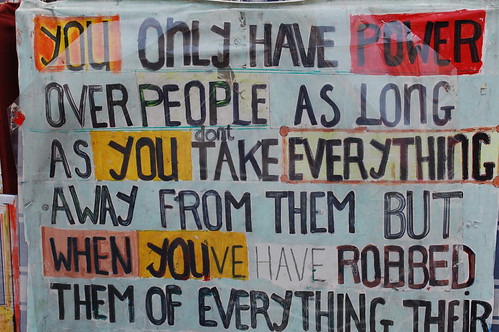 YOU ONLY HAVE POWER
OVER PEOPLE AS LONG
AS YOU dont TAKE EVERYTHING
AWAY FROM THEM BUT
WHEN YOU'VE HAVE ROBBED
THEM OF EVERYTHING THEiR